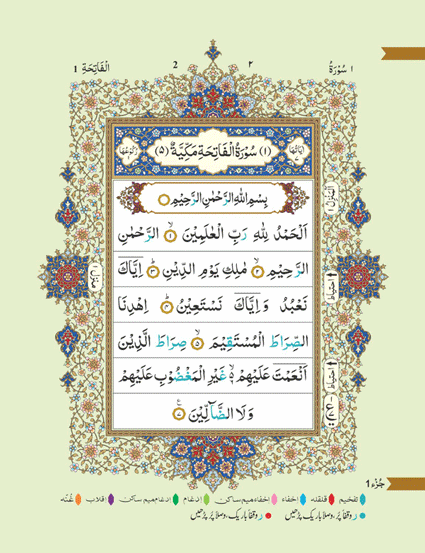 ١ سُوْرَةُ ٢ 2 اَلْفَاتِحَةِ 1
اٰيَاتُهَا ٧ (١) سُوْرَةُ الْفَاتِحَةِ مَكِّيَّةٌ (٥) رُكُوْعُهَا ١
بِسْمِ اللهِ الرَّحْمٰنِ الرَّحِيْمِ
اَلْحَمْدُ لِلّٰهِ رَبِّ الْعٰلَمِيْنَ ۙ ١ الرَّحْمٰنِ
الرَّحِيْمِ ۙ ٢ مٰلِكِ يَوْمِ الدِّيْنِ ؕ ٣ اِيَّاكَ
نَعْبُدُ وَاِيَّاكَ نَسْتَعِيْنُ ؕ ٤ اِهْدِنَا
الصِّرَاطَ الْمُسْتَقِيْمَ ۙ ٥ صِرَاطَ الَّذِيْنَ
اَنْعَمْتَ عَلَيْهِمْ ۙ غَيْرِ الْمَغْضُوْبِ عَلَيْهِمْ
وَلَا الضَّآلِّيْنَ
منزل ١
احتياط
جُزء 1
تفخیم قلقلہ اخفاء اخفاء میم ساکن ادغام ادغام میم ساکن اقلاب غُنّہ
ر وقفاً پُر، وصلاً باریک پڑھیں ر وقفاً باریک، وصلاً پُر پڑھیں